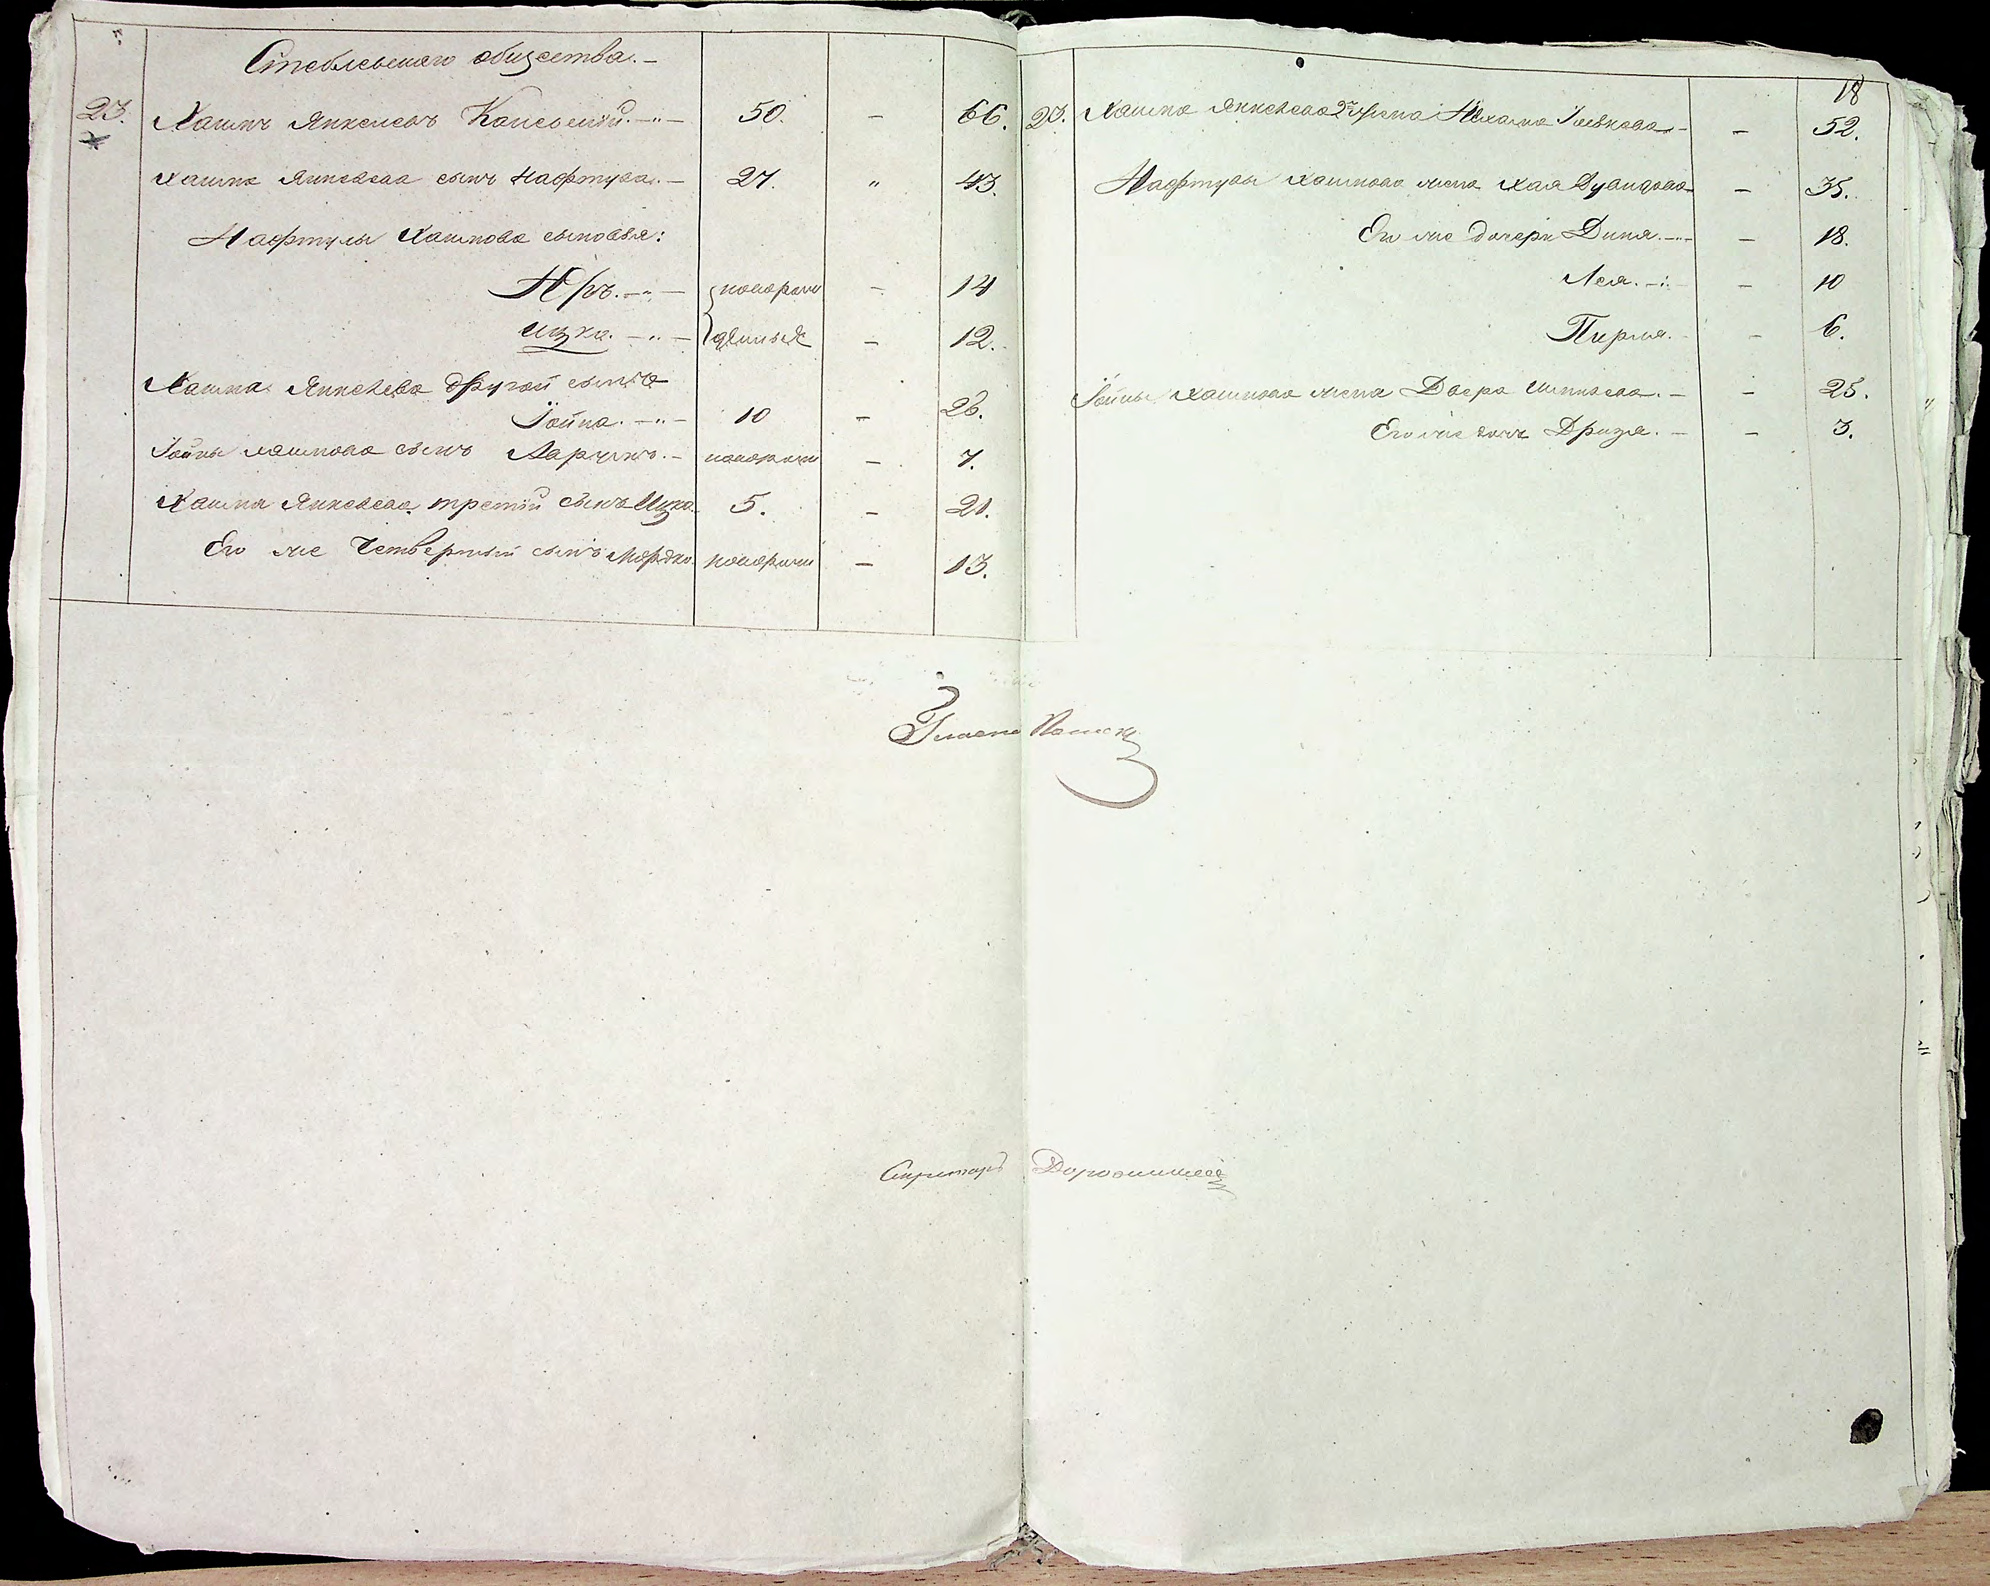 Стеблевскаго общества. —
23. Хаимъ Янкелевъ Каневскій. — 50. — 66.
Хаима Янкелева сынъ Нафтула. — 27. „ 43.
Нафтулы Хаимова сыновья:
Юръ. — новорож — 14
Ицко. — денные — 12.
Хаима Янкелева другой сынъ
Іойна. — 10 — 26.
Іойны Хаимова сынъ Аарунъ. — новорож — 7.
Хаима Янкелева третій сынъ Ицко. 5. — 21.
Его же четвертый сынъ Мордко. новорож — 13.
18
23. Хаима Янкелева 2я жена Нехама — 52.
Нафтулы Хаимова жена Хая Дувидова — 35.
Его же дочери Диня. — 18.
Лея. — 10
Пирля. — 6.
Іойны Хаимова жена Двера — 25.
Его же дочь Дризя. — 3.
Секретарь